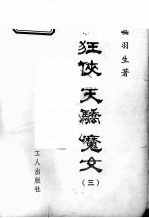 羽生著
狂俠天驕魔女
(三)
工人出版社